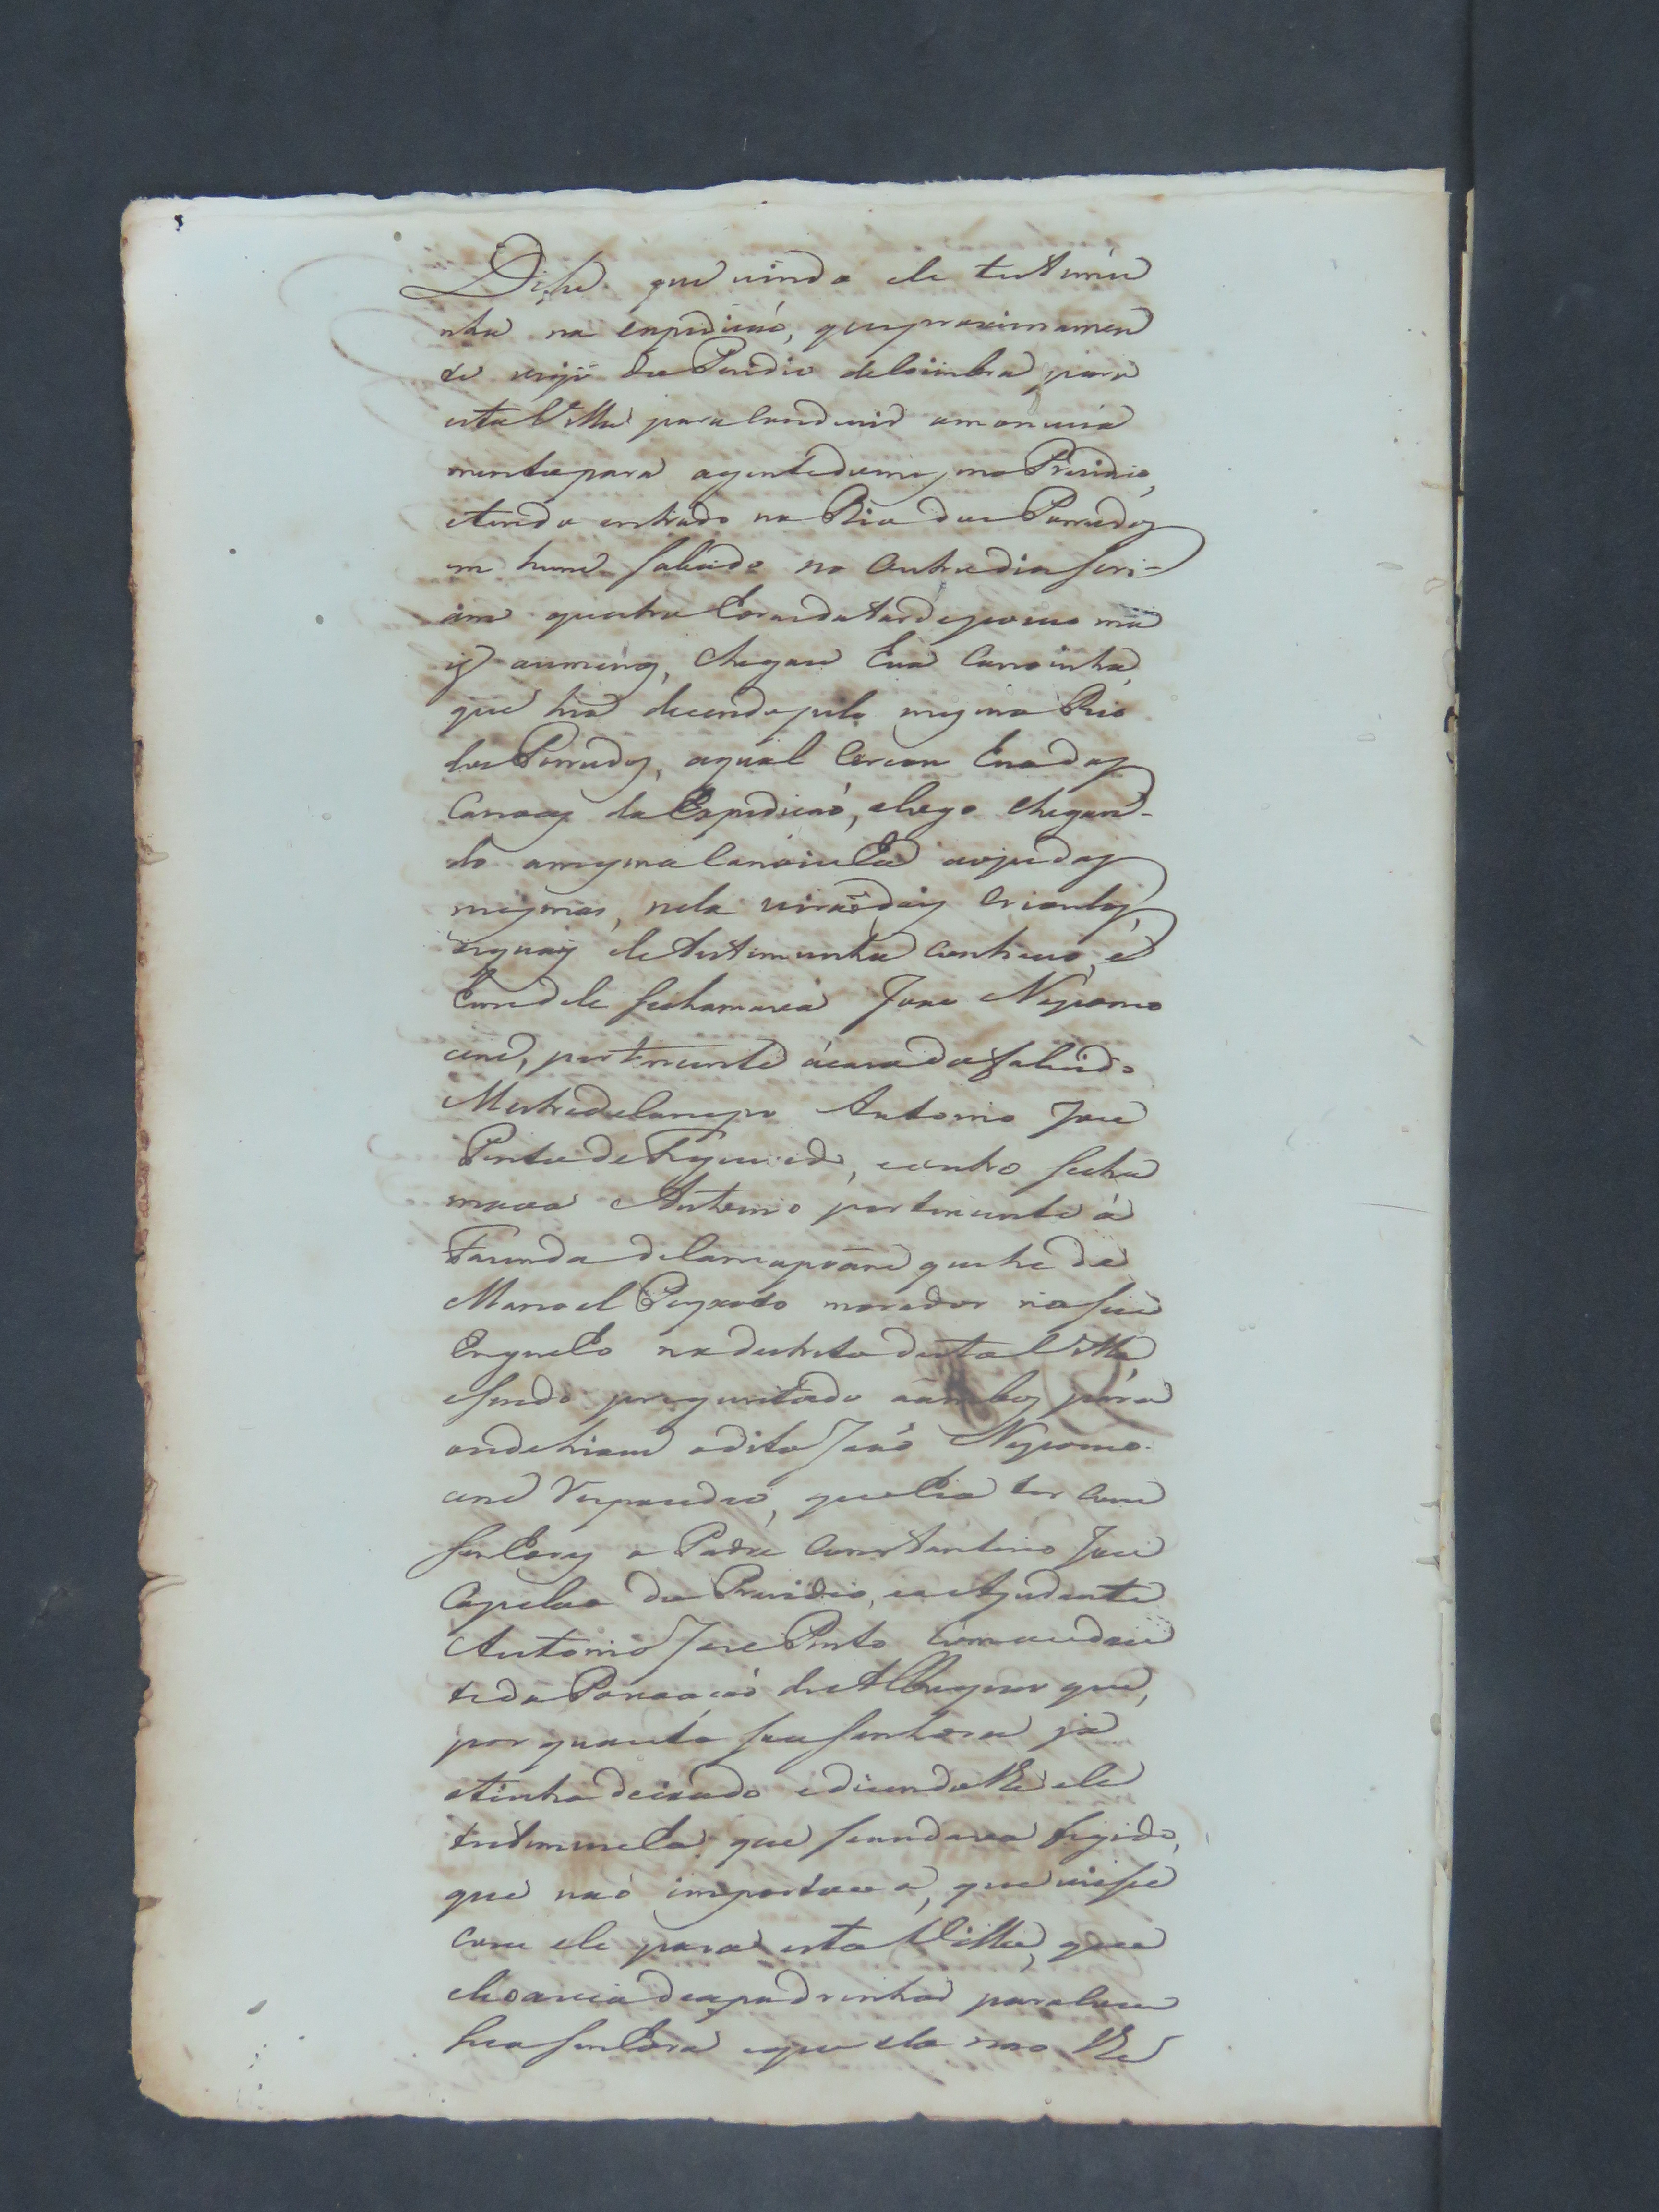 Disse que vindo ele testimu
nha na expedicaó, que proximamen
te veyo do Presidio de Coimbra para
esta Villa para conduzir o municia
mento para agente de mes no Prezidio,
etendo entrado no Rio dos Porrudos
em hum sabado no outro dia seri-
am quatro horas da tarde pouco ma
is oumenos, chegou hua Canoinha,
que hia decendo pelo mesmo Rio
dos Porrudos, aqual Cercou huá das
Canoas da Expedicaó, elogo chegan-
do amesma Canoinha aopé das
mesmas, nela viraó dois Crioulos,
os quais ele testimunha conheceo, e
hum dele sechamava Joao Nepomo
ceno, pertencente ácasa dofalecido
Mestre de Campo Antonio Joze
Pinto de Figueiredo, eoutro secha
mava Antonio pertencente á
Fazenda de Camapoam que he de
Manoel Peyxoto morador no seu
Engenho no destrito desta Villa,
esendo preguntado aambos para
onde hiam odito Joaó Nepomo-
ceno Respondeo, que hia ter com
senhores o Padre Constantino Joze
Capelao do Prezidio, eo Ajudante
Antonio Joze Pinto Comandan
te da Povoacaó de Albuquerque,
por quanto sua senhora ja
otinha deixado edizendolhe ele
testimunha que seandava fugido,
que naó importava, que viesse
com ele para esta Villa, que
elle oavia de apadrinhar para com
sua senhora eque ela nao lhe